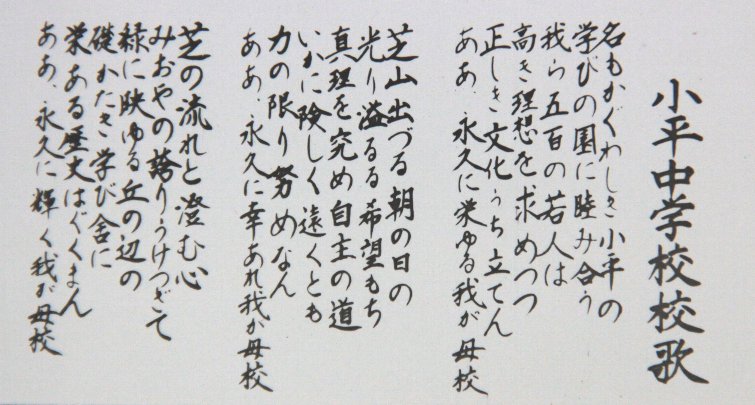 小平中学校校歌
名もかぐわしき小平の
学びの園に睦み合う
我ら五百の若人は
高き理想を求めつつ
正しき文化うち立てん
ああ、永久に栄ゆる我が母校
芝山出づる朝の日の
光り溢るる希望もち
真理を究め自主の道
いかに険しく遠くとも
力の限り努めなん
ああ、永久に幸あれ我が母校
芝の流れと澄む心
みおやの誇りうけつぎて
緑に映ゆる丘の辺の
礎かたき学び舎に
栄ある歴史はぐくまん
ああ、永久に輝く我が母校